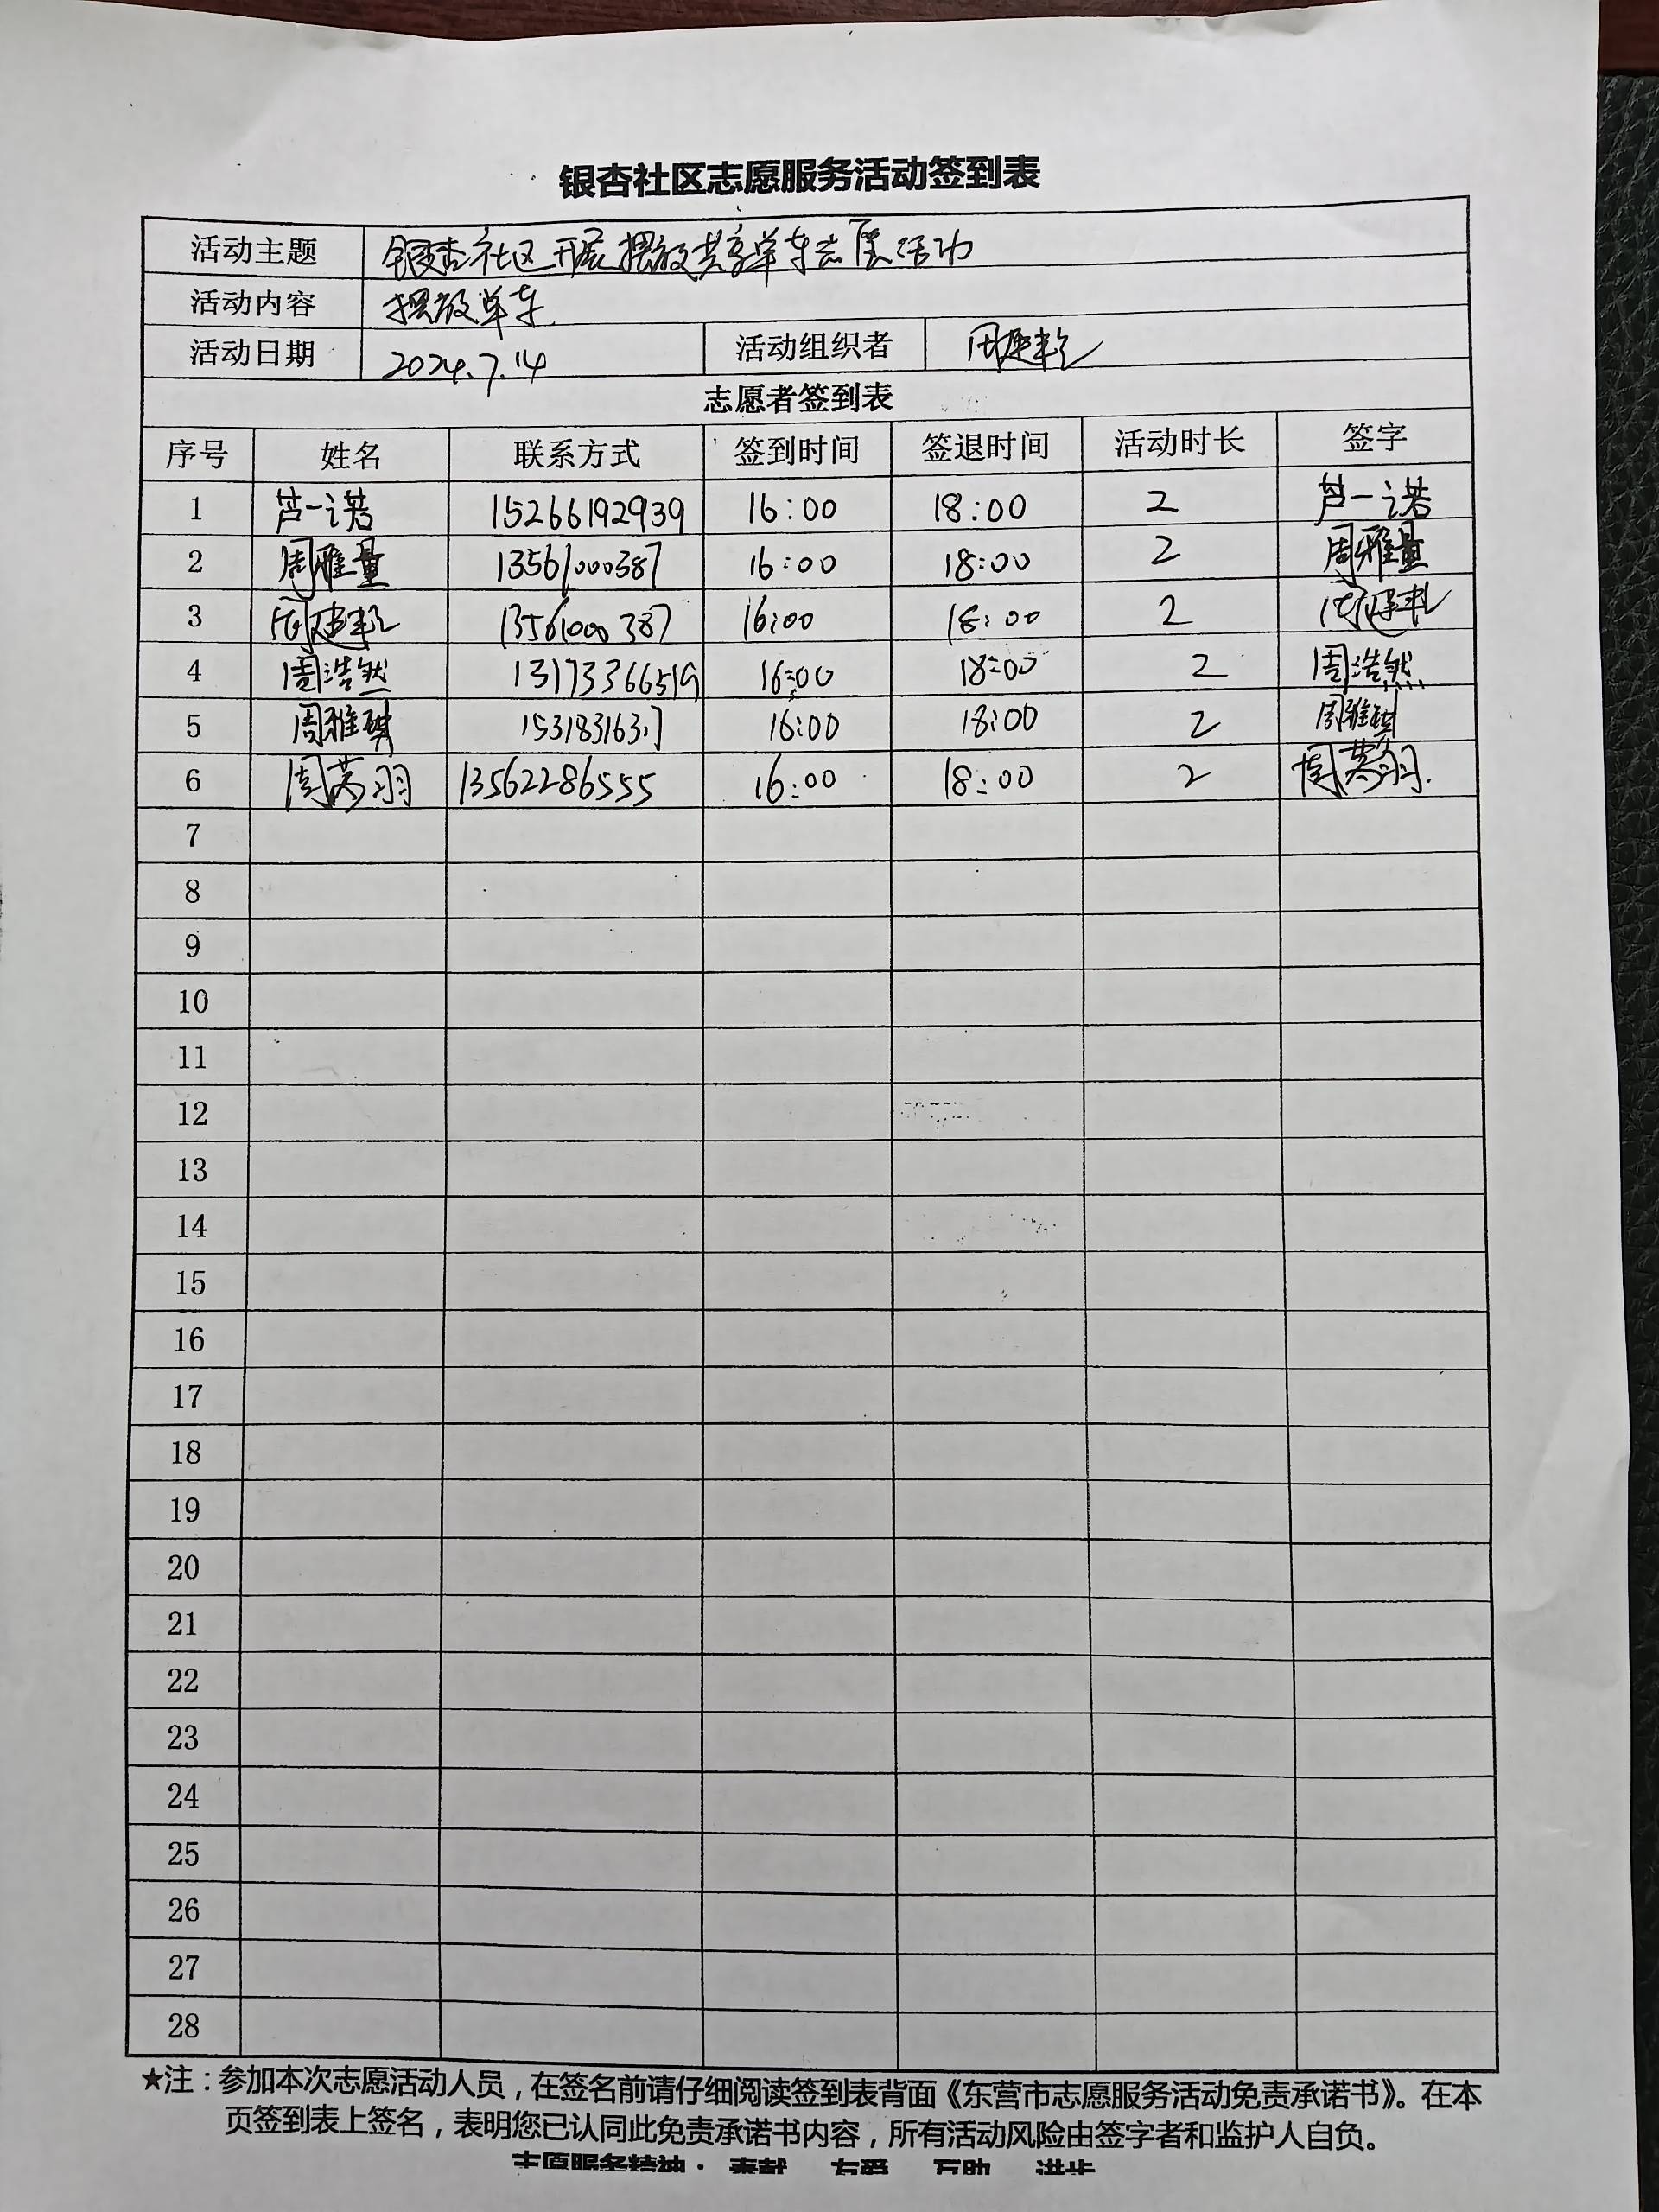 银杏社区志愿服务活动签到表
活动主题 银杏社区开展摆放共享单车志愿活动
活动内容 摆放单车.
活动日期 2024.7.14 活动组织者 周建
志愿者签到表
序号 姓名 联系方式 签到时间 签退时间 活动时长 签字
1 芦一诺 15266192939 16:00 18:00 2 芦一诺
2 周雅量 13561000387 16:00 18:00 2 周雅量
3 周建 13561000387 16:00 18:00 2 周建
4 周浩然 13173366519 16:00 18:00 2 周浩然
5 周雅琪 16:00 18:00 2 周雅琪
6 周 羽 13562286555 16:00 18:00 2 周 羽.
7
8
9
10
11
12
13
14
15
16
17
18
19
20
21
22
23
24
25
26
27
28
★注：参加本次志愿活动人员，在签名前请仔细阅读签到表背面《东营市志愿服务活动免责承诺书》。在本
页签到表上签名，表明您已认同此免责承诺书内容，所有活动风险由签字者和监护人自负。
志愿服务精神： 奉献 友爱 互助 进步